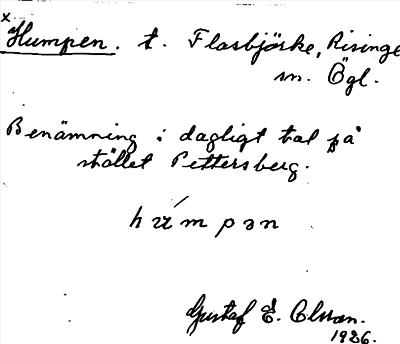 x Humpen. t. Flasbjörke, Risinge
sn. Ögl.
Benämning i dagligt tal på
stället Pettersberg.
húmpən
Gustaf E. Olsson.
1926.